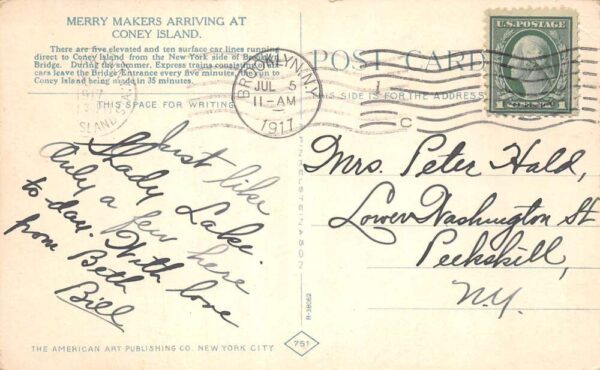 MERRY MAKERS ARRIVING AT
CONEY ISLAND.
There are five elevated and ten surface car lines running
direct to Coney Island from the New York side of Brooklyn
Bridge. During the summer, Express trains consisting of
cars leave the Bridge Entrance every five minutes, the run to
Coney Island being made in 35 minutes.
THIS SPACE FOR WRITING
POST CARD
THIS SIDE IS FOR THE ADDRESS
U.S. POSTAGE
1
BROOKLYN, N.Y.
JUL 5
11-AM
1917
1917
ISLAND STATION
1
C
Just like
Shady Lake.
Only a few here
to day. With love
from Beth
Bill
Mrs. Peter Hald,
Lower Washington St
Peekskill,
N.Y.
R-38062
THE AMERICAN ART PUBLISHING CO. NEW YORK CITY
751